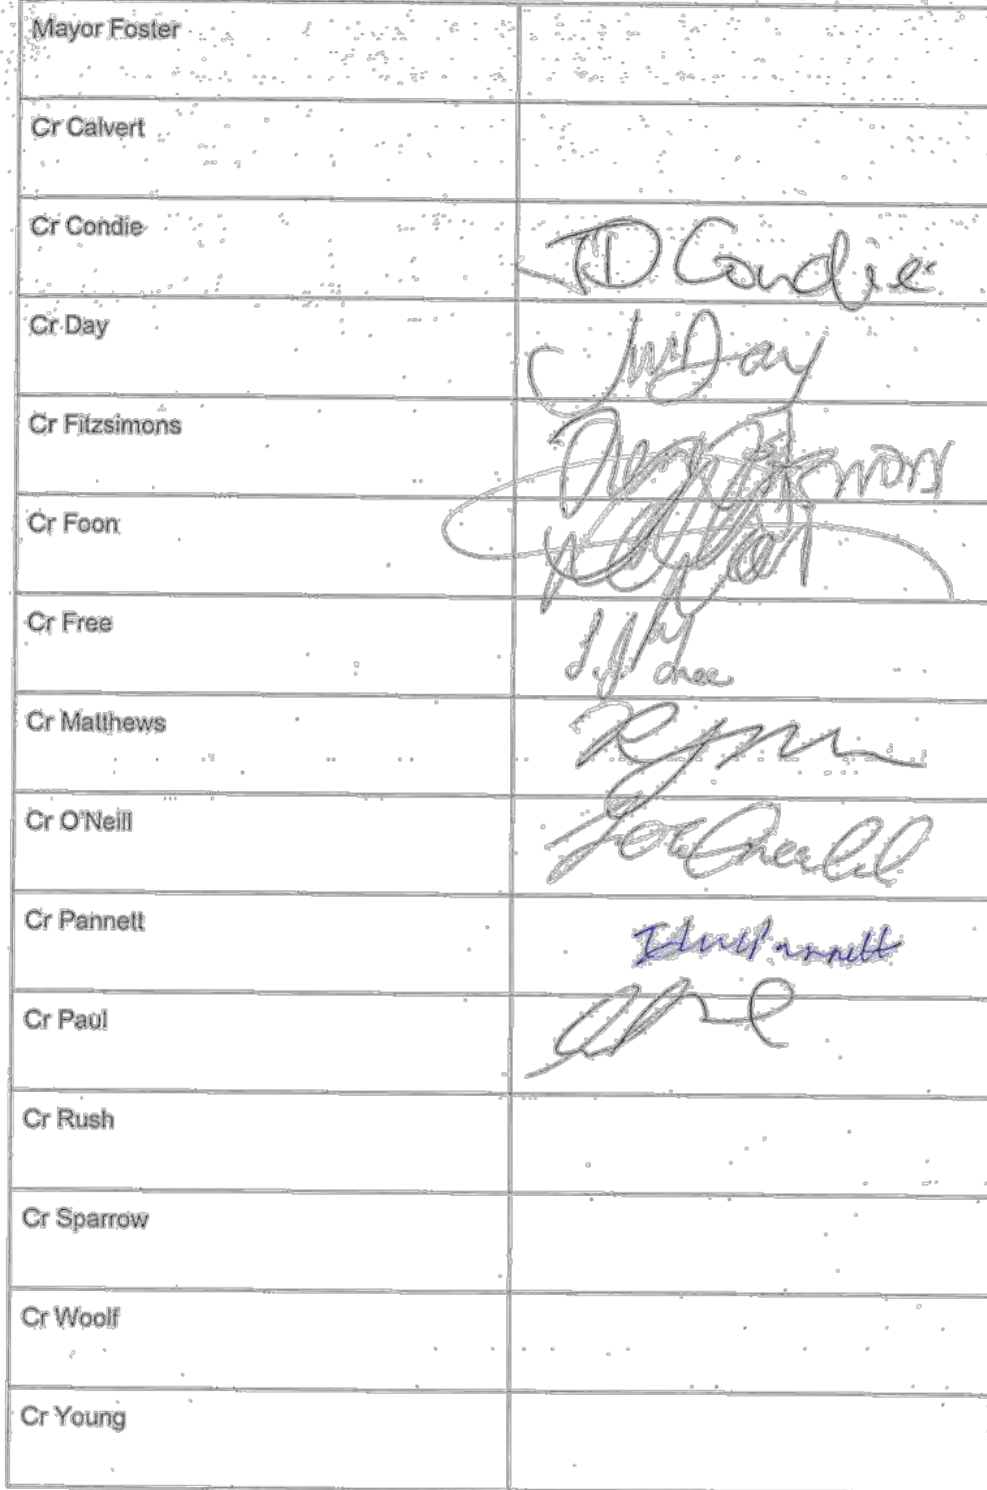 Mayor Foster
Cr Calvert
Cr Condie JD Condie
Cr Day Day
Cr Fitzsimons
Cr Foon
Cr Free
Cr Matthews
Cr O'Neill
Cr Pannett Pannett
Cr Paul
Cr Rush
Cr Sparrow
Cr Woolf
Cr Young